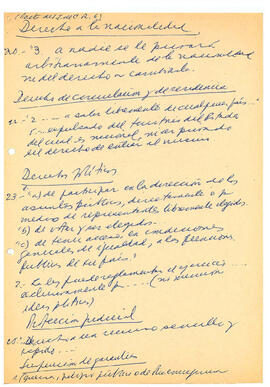 Derecho a la nacionalidad
20.- "3. A nadie se le privará
arbitrariamente de la nacionalidad
ni del derecho a cambiarla.
Derecho de circulación y de residencia
22.- "2. - a salir libremente de cualquier país
expulsado del territorio del Estado
del cual es nacional, ni ser privado
del derecho de entrar al mismo
Derechos Políticos
23 - "a) de participar en la dirección de los
asuntos públicos, directamente o por
medio de representantes libremente elegidos.
"b) de votar y ser elegidos.
"c) de tener acceso, en condiciones
generales de igualdad, a las funciones
públicas de su país.
2. La ley puede reglamentar el ejercicio
exclusivamente por
Protección judicial
25.- Derecho a un recurso sencillo y
rápido.
Suspensión de garantías
guerra, peligro público o de otra emergencia